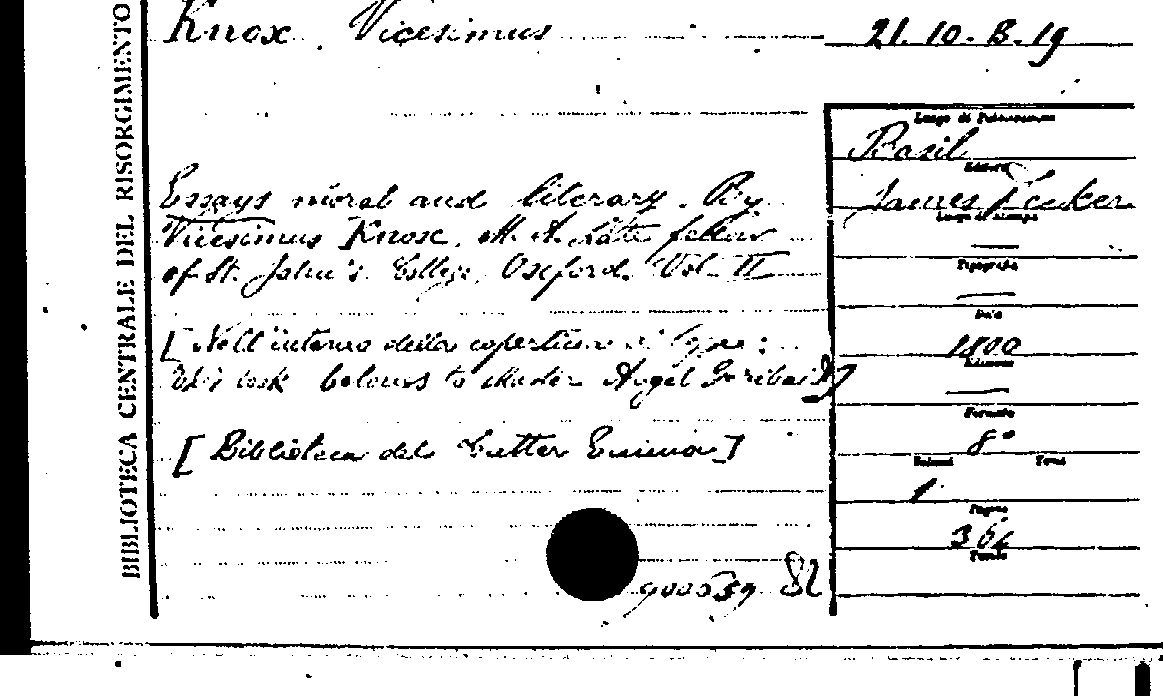 BIBLIOTECA CENTRALE DEL RISORGIMENTO
Knox, Vicesimus
21.10.B.19
Essays moral and literary. By
Vicesimus Knox, M. A. late fellow
of St. John's College, Oxford. Vol. II
[Nell'interno della copertina si legge:
belowes to Angel Goribaldy]
[Biblioteca del Emma]
Luogo di Pubblicazione
Basil
Editore
James Decker
Luogo di Stampa
—
Tipografia
—
Data
1800
Edizione
—
Formato
8°
Volumi Tomi
1
Pagine
Tavole
900539 82